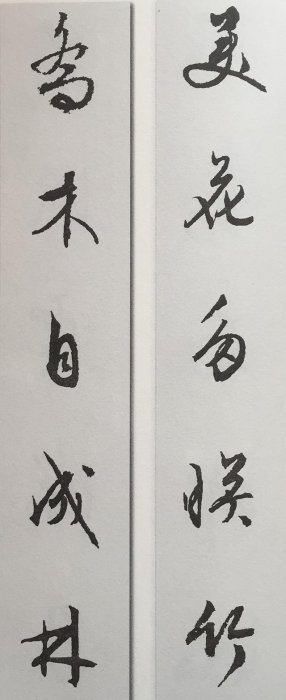 美花多映竹
喬木自成林